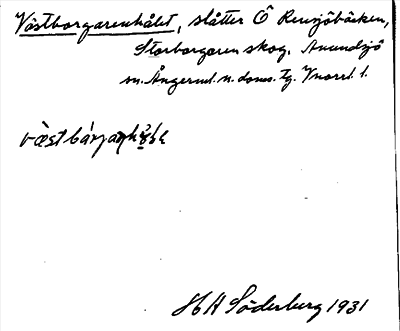 Västborgarenhålet, slåtter Ö Rensjöbäcken,
Storborgaren skog. Anundsjö
sn. Ångerml. n. doms. tg. Vnorrl. l.
H A Söderberg 1931